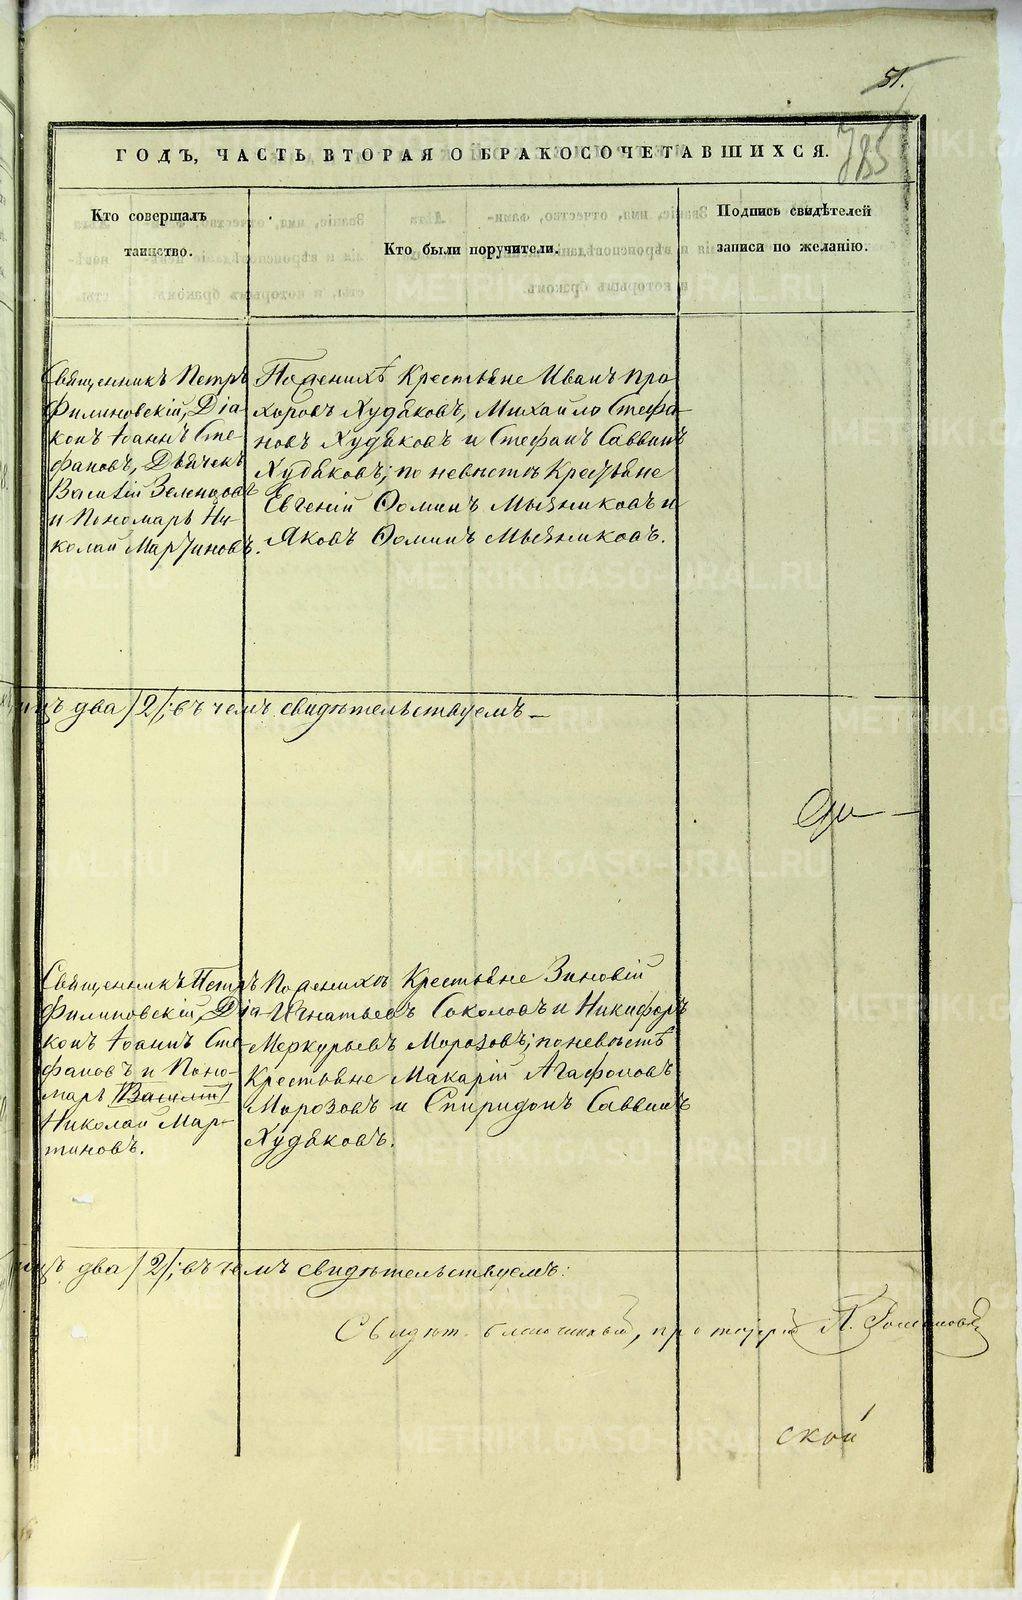 51.
785
ГОДЪ, ЧАСТЬ ВТОРАЯ О БРАКОСОЧЕТАВШИХСЯ.
Кто совершалъ
таинство.
Кто были поручители.
Подпись свидѣтелей
записи по желанію.
Священникъ Петръ
Филиновскій, Діа-
конъ Іоаннъ Сте-
фановъ, Дьячекъ
Василій Зеленцовъ
и Пономарь Ни-
колай Мартиновъ.
По женихѣ Крестьяне Иванъ Про
хоровъ Худяковъ, Михайло Стефа-
новъ Худяковъ и Стефанъ Саввинъ
Худяковъ; по невѣстѣ Крестьяне
Евгеній Ѳоминъ Мысниковъ и
Яковъ Ѳоминъ Мысниковъ.
два /2/; въ чемъ свидѣтельствуемъ
Священникъ Петръ
Филиновскій, Діа-
конъ Іоаннъ Сте
фановъ и Поно-
марь Василій
Николай Мар-
тиновъ.
По женихѣ Крестьяне Зиновій
Игнатьевъ Соколовъ и Никифоръ
Меркурьевъ Морозовъ; по невѣстѣ
Крестьяне Макарій Агафоновъ
Морозовъ и Спиридонъ Саввинъ
Худяковъ.
два /2/; въ чемъ свидѣтельствуемъ:
Свидѣт. благочинный, протоіерей
ской
METRIKI.GASO-URAL.RU